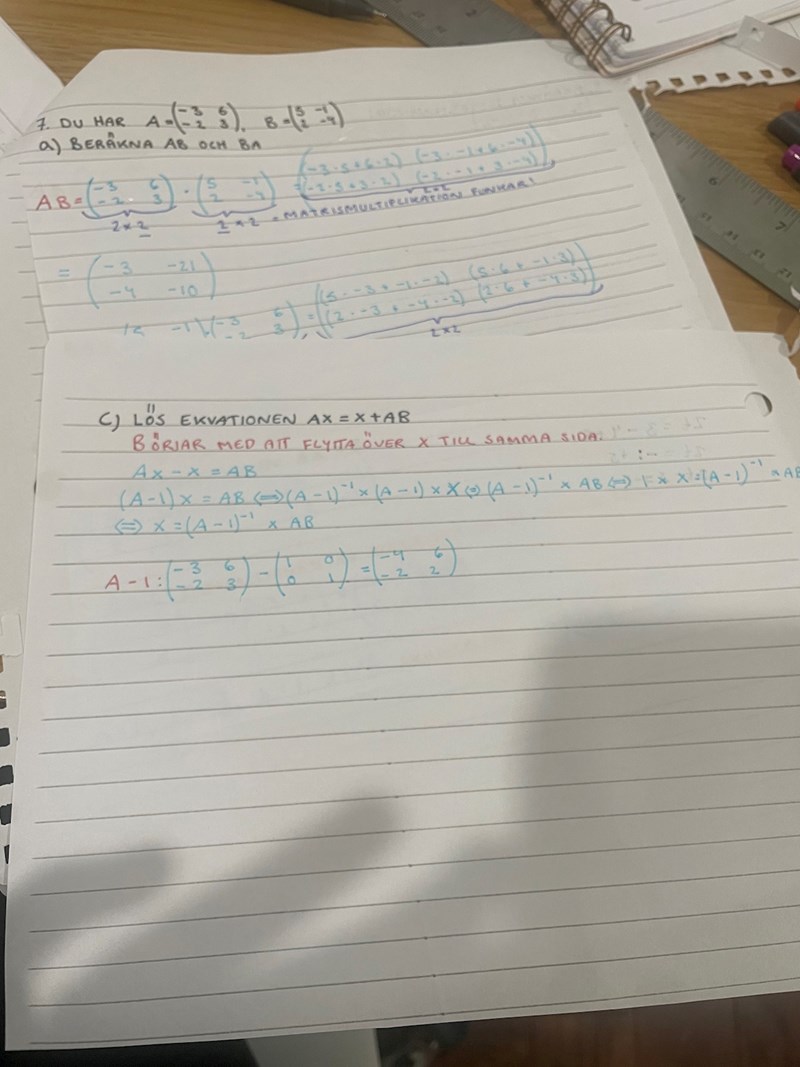 7. DU HAR A=(-3 6 / -2 3), B=(5 -1 / 2 -4)
a) BERÄKNA AB OCH BA
AB=(-3 6 / -2 3) · (5 -1 / 2 -4) = ((-3·5+6·2) (-3·-1+6·-4) / (-2·5+3·2) (-2·-1+3·-4))
2×2 2×2 → MATRISMULTIPLIKATION FUNKAR! 2×2
= (-3 -21 / -4 -10)
-1)(-3 6 / -2 3) = ((5·-3+-1·-2) (5·6+-1·3) / (2·-3+-4·-2) (2·6+-4·3))
2×2
C) LÖS EKVATIONEN AX = X+AB
BÖRJAR MED ATT FLYTTA ÖVER X TILL SAMMA SIDA:
AX-X = AB
(A-1)X = AB ⇔ (A-1)⁻¹ × (A-1) × X ⇔ (A-1)⁻¹ × AB ⇔ 1 × X = (A-1)⁻¹ × AB
⇔ X = (A-1)⁻¹ × AB
A-1: (-3 6 / -2 3) - (1 0 / 0 1) = (-4 6 / -2 2)
6
7